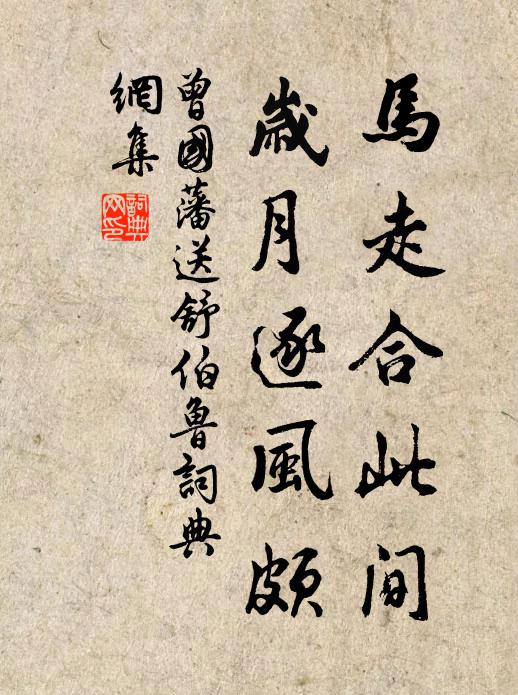 馬走合此間
歲月逐風頗
曾國藩送舒伯魯詞典
網集
詞典
網印